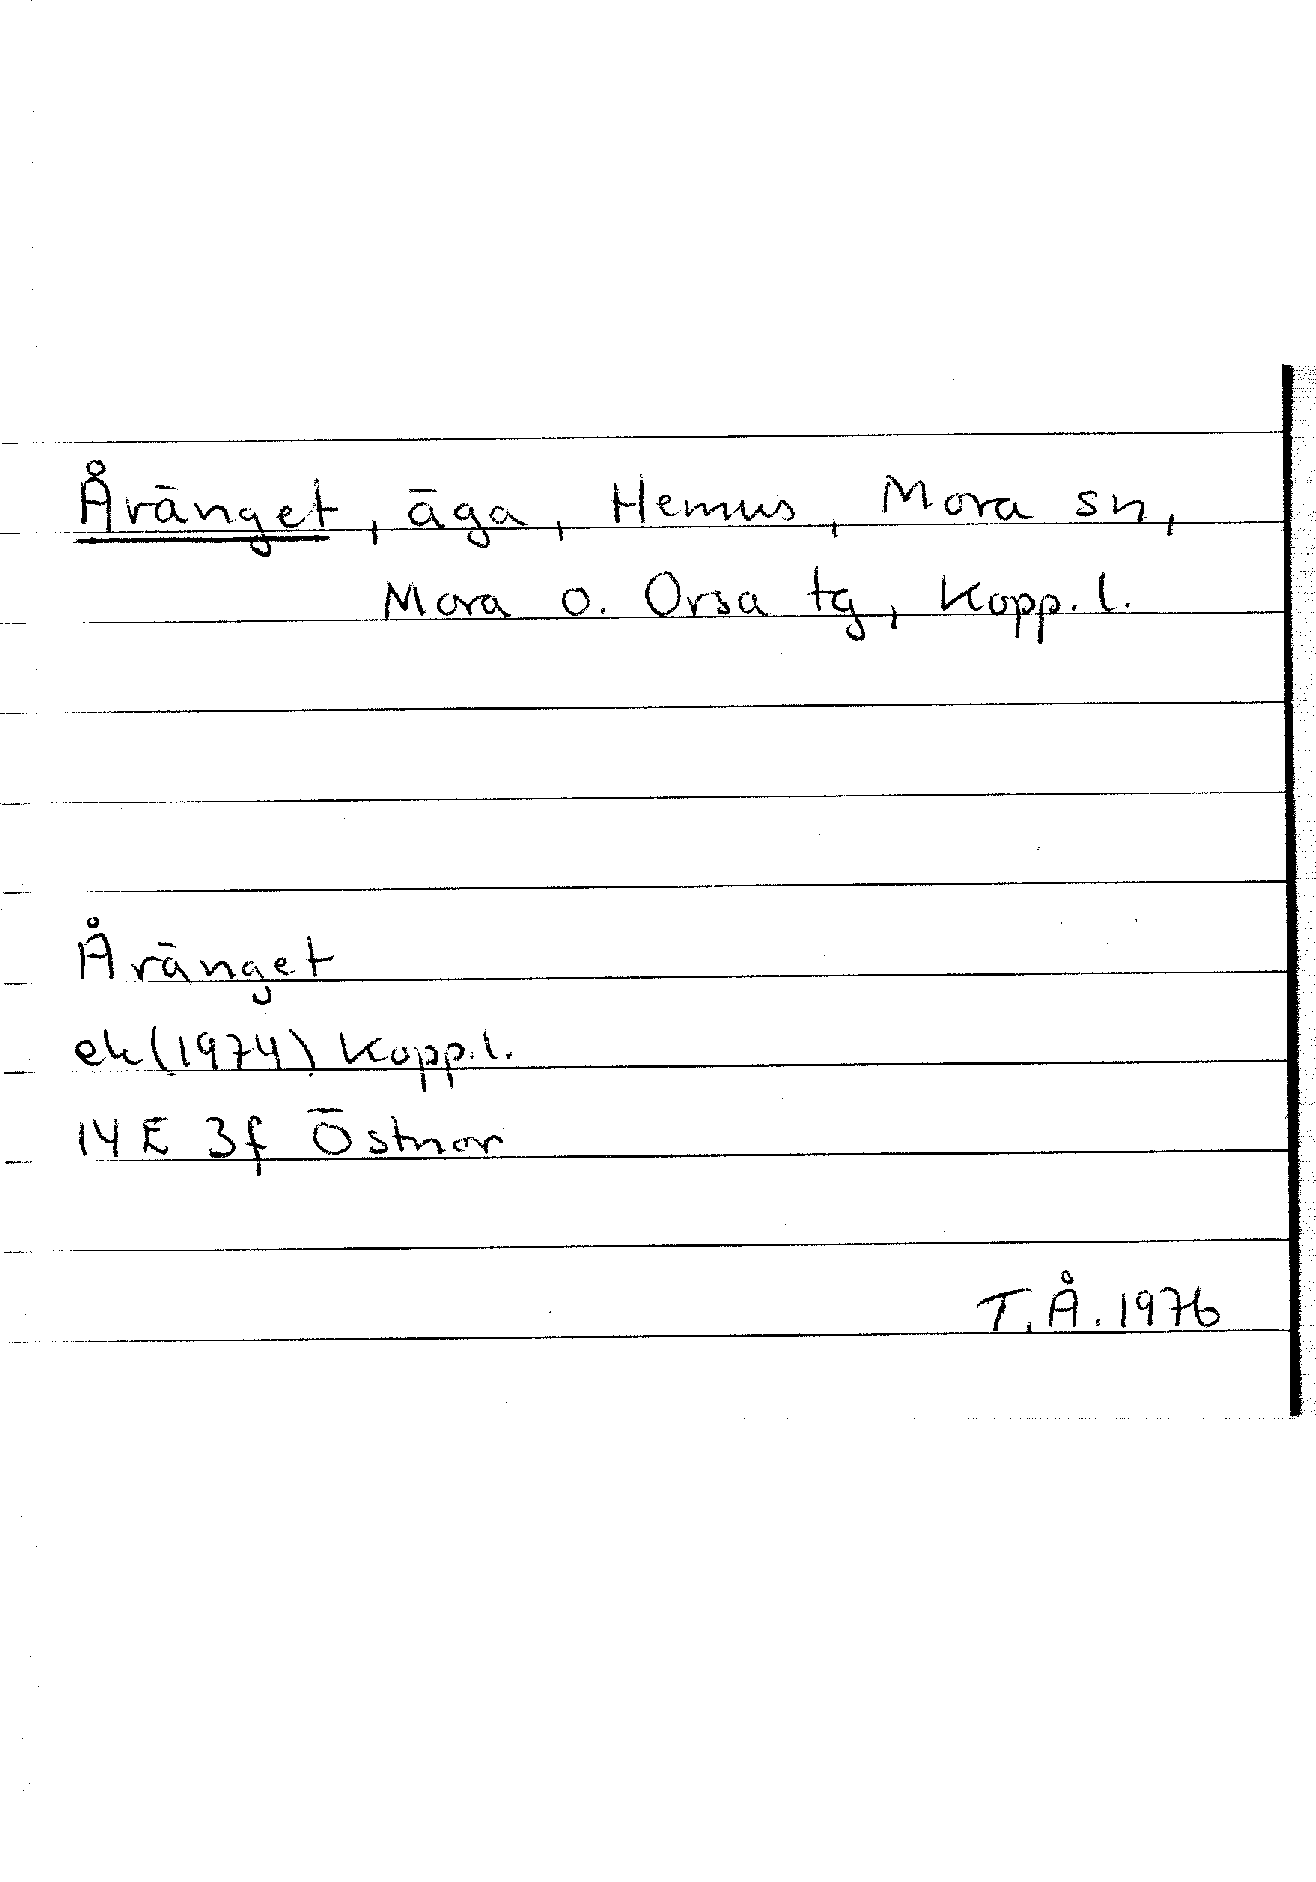 Åränget, äga, Hemus, Mora sn,
Mora o. Orsa tg, Kopp. l.
Åränget
ek (1974) Kopp. l.
14 E 3f Östnor
T. Å. 1976